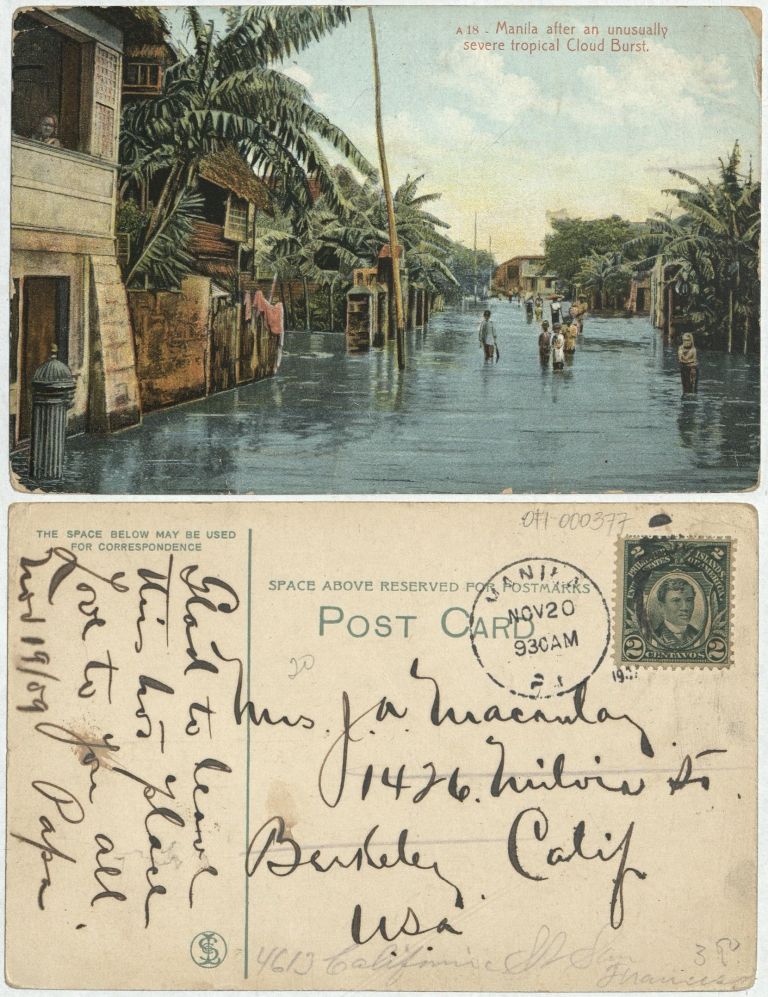 A 18 - Manila after an unusually
severe tropical Cloud Burst.
071-000377
THE SPACE BELOW MAY BE USED
FOR CORRESPONDENCE
SPACE ABOVE RESERVED FOR POSTMARKS
POST CARD
MANILA
NOV 20
930AM
P.I.
2 PHILIPPINE ISLANDS 2
UNITED STATES OF AMERICA
2 CENTAVOS 2
Glad to leave
this hot place
Love to you all
Papa
Nov 19/09
20
Mrs. J. A. Macaulay
1426. Milvia St.
Berkeley Calif
USA
4613 California St San
Francisco
3